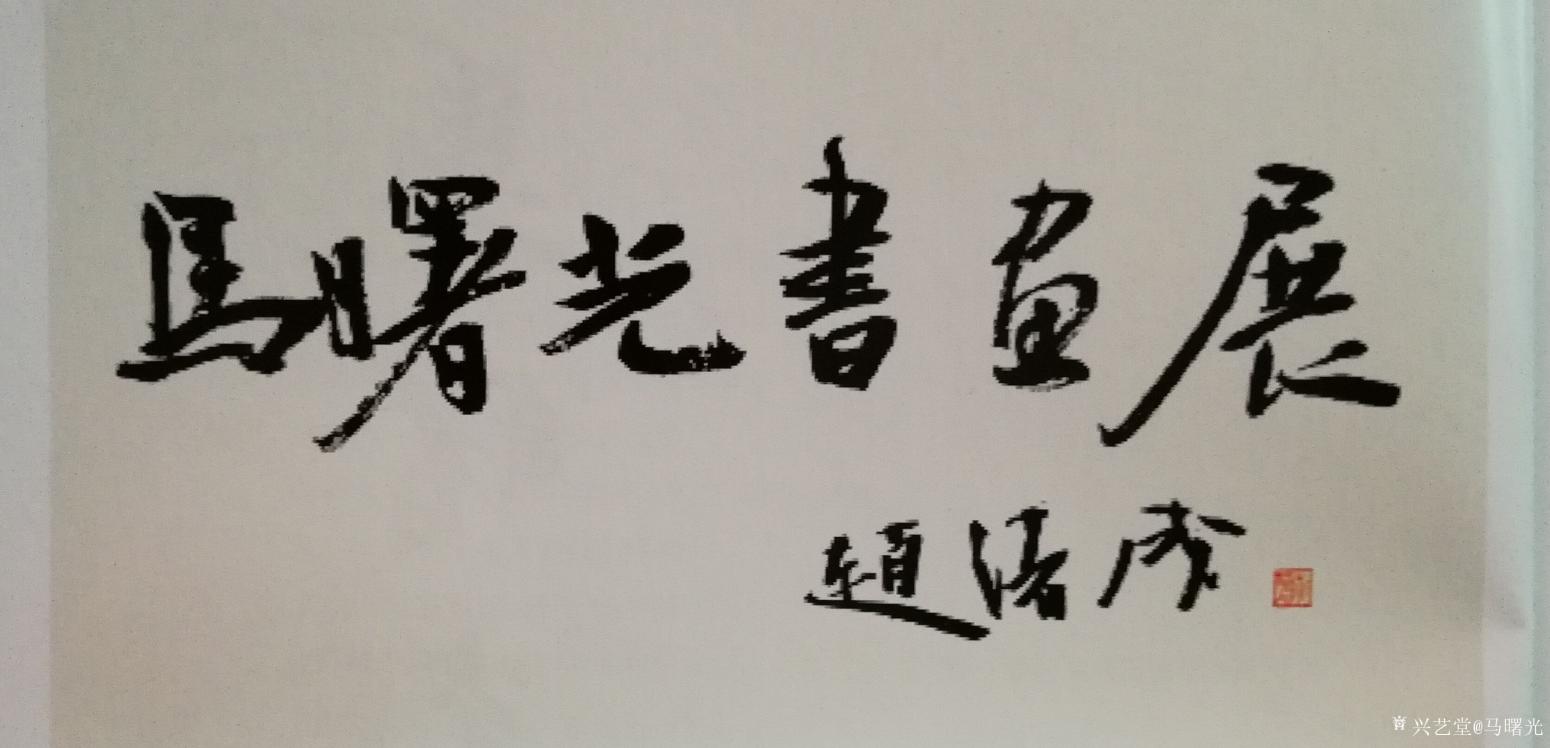 馬曙光書画展
趙清成
兴艺堂@马曙光